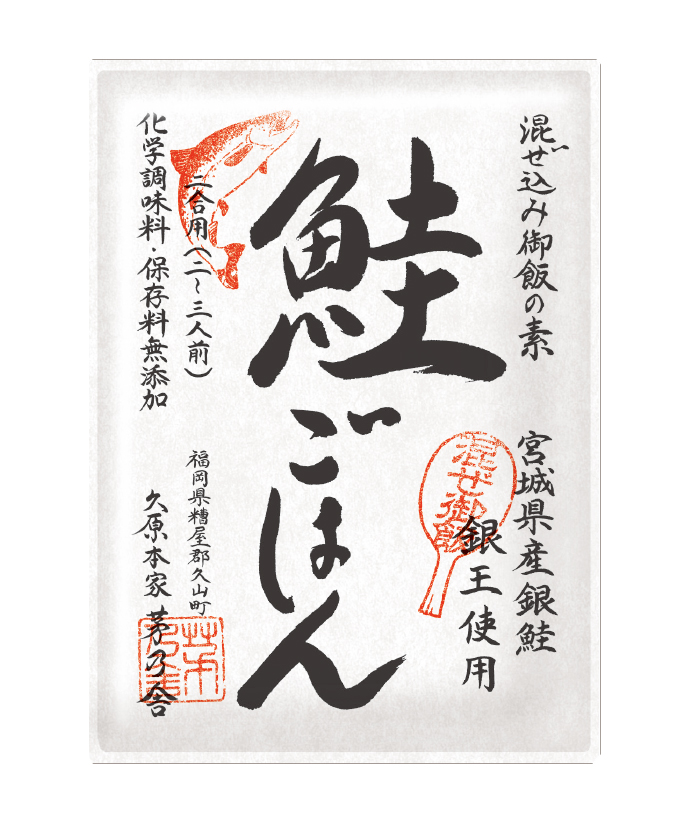 混ぜ込み御飯の素
宮城県産銀鮭
銀王使用
混ぜ御飯
鮭
ごはん
二合用（二〜三人前）
福岡県糟屋郡久山町
化学調味料・保存料無添加
久原本家 茅乃舎
茅乃舎